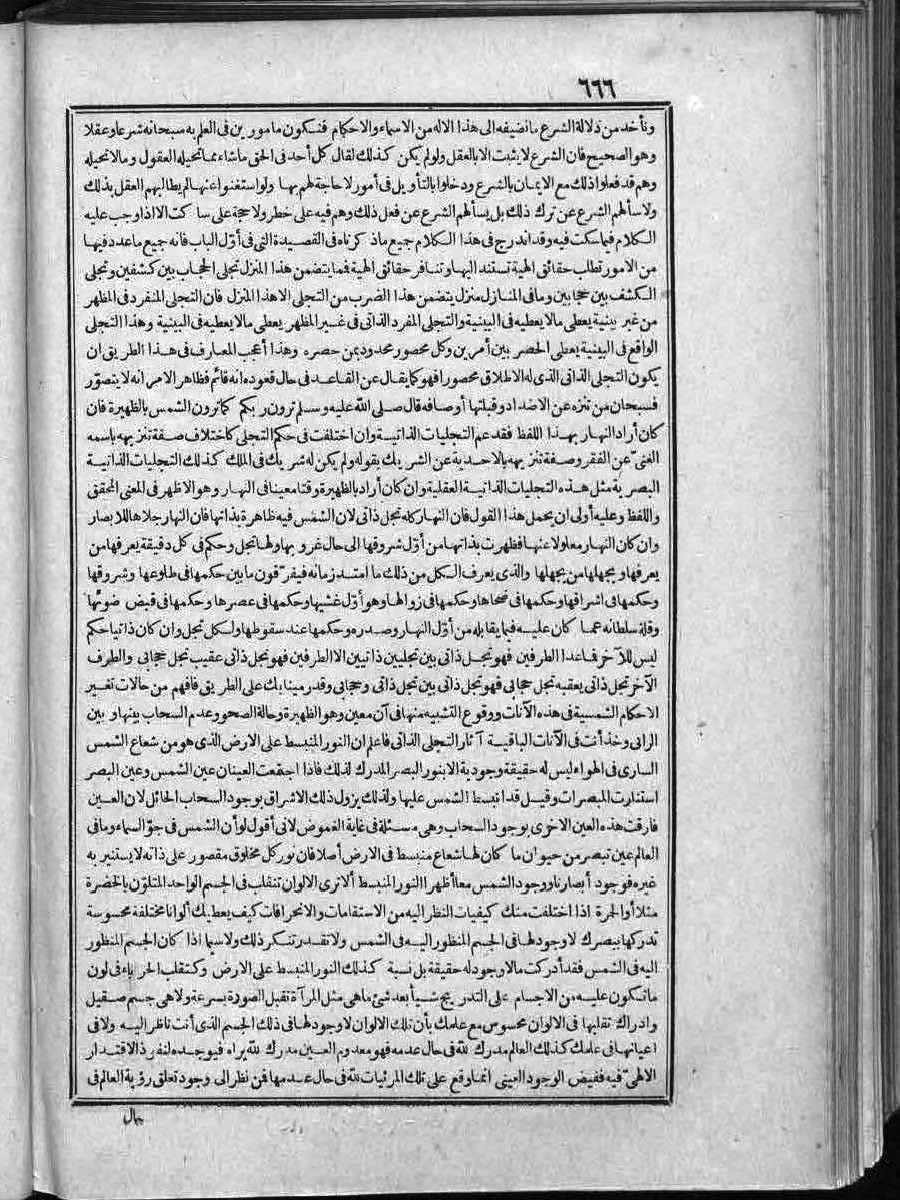 ٦٦٦
ونأخذ من دلالة الشرع ما نضيفه الى هذا الاله من الاسماء والاحكام فنكون مأمورين فى العلم به سبحانه شرعا وعقلا
وهو الصحيح فان الشرع لا يثبت الا بالعقل ولو لم يكن كذلك لقال كل أحد فى الحق ما شاء مما تحيله العقول وما لا تحيله
وهم قد فعلوا ذلك مع الايمان بالشرع ودخلوا بالتأويل فى أمور لا حاجة لهم بها ولو استغنوا عنها لم يطالبهم العقل بذلك
ولا سألهم الشرع عن ترك ذلك بل يسألهم الشرع عن فعل ذلك وهم فيه على خطر ولا حجة على ساكت الا اذا وجب عليه
الكلام فيما سكت فيه وقد اندرج فى هذا الكلام جميع ما ذكرناه فى القصيدة التى فى أوّل الباب فانه جميع ما عدد فيها
من الامور تطلب حقائق الهية تستند اليها وتنافر حقائق الهية فما يتضمن هذا المنزل تجلى الحجاب بين كشفين وتجلى
الكشف بين حجابين وما فى المنازل منزل يتضمن هذا الضرب من التجلى الا هذا المنزل فان التجلى المنفرد فى المظهر
من غير بينية يعطى ما لا يعطيه فى البينية والتجلى المفرد الذاتى فى غير المظهر يعطى ما لا يعطيه فى البينية وهذا التجلى
الواقع فى البينية يعطى الحصر بين أمرين وكل محصور محدود بمن حصره وهذا أعجب المعارف فى هذا الطريق ان
يكون التجلى الذاتى الذى له الاطلاق محصورا فهو كما يقال عن القاعد فى حال قعوده انه قائم فظاهر الامر انه لا يتصوّر
فسبحان من تنزه عن الاضداد وقبلتها أوصافه قال صلى الله عليه وسلم ترون ربكم كما ترون الشمس بالظهيرة فان
كان أراد النهار بهذا اللفظ فقد عم التجليات الذاتية وان اختلفت فى حكم التجلى كاختلاف صفة تنزيهه باسمه
الغنىّ عن الفقر وصفة تنزيهه بالاحدية عن الشريك بقوله ولم يكن له شريك فى الملك كذلك التجليات الذاتية
البصرية مثل هذه التجليات الذاتية العقلية وان كان أراد بالظهيرة وقتا معينا فى النهار وهو الاظهر فى المعنى المحقق
واللفظ وعليه أولى ان يحمل هذا القول فان النهار كله تجل ذاتى لان الشمس فيه ظاهرة بذاتها فان النهار جلاها للابصار
وان كان النهار معلولا عنها فظهرت بذاتها من أوّل شروقها الى حال غروبها ولها تجل وحكم فى كل دقيقة يعرفها من
يعرفها ويجهلها من يجهلها والذى يعرف الكل من ذلك ما امتد زمانه فيفرّقون ما بين حكمها فى طلوعها وشروقها
وحكمها فى اشراقها وحكمها فى ضحاها وحكمها فى زوالها وهو أوّل عشيها وحكمها فى عصرها وحكمها فى قبض ضوئها
وقلة سلطانه عما كان عليه فيما يقابله من أوّل النهار وصدره وحكمها عند سقوطها ولكل تجل وان كان ذاتيا حكم
ليس للآخر فما عدا الطرفين فهو تجل ذاتى بين تجليين ذاتيين الا الطرفين فهو تجل ذاتى عقيب تجل حجابى والطرف
الآخر تجل ذاتى يعقبه تجل حجابى فهو تجل ذاتى بين تجل ذاتى وحجابى وقد رمينا بك على الطريق فافهم من حالات تغير
الاحكام الشمسية فى هذه الآنات ووقوع التشبيه منها فى آن معين وهو الظهيرة وحالة الصحو وعدم السحاب بينها وبين
الرائى وخذ أنت فى الآنات الباقية آثار التجلى الذاتى فاعلم ان النور المنبسط على الارض الذى هو من شعاع الشمس
السارى فى الهواء ليس له حقيقة وجودية الا بنور البصر المدرك لذلك فاذا اجتمعت العينان عين الشمس وعين البصر
استنارت المبصرات وقيل قد انبسط الشمس عليها ولذلك يزول ذلك الاشراق بوجود السحاب الحائل لان العين
فارقت هذه العين الاخرى بوجود السحاب وهى مسئلة فى غاية الغموض لانى أقول لو أن الشمس فى جوّ السماء وما فى
العالم عين تبصر من حيوان ما كان لها شعاع منبسط فى الارض أصلا فان نور كل مخلوق مقصور على ذاته لا يستنير به
غيره فوجود أبصارنا ووجود الشمس معا أظهر النور المنبسط ألا ترى الالوان تنقلب فى الجسم الواحد المتلوّن بالخضرة
مثلا أو الحمرة اذا اختلفت منك كيفيات النظر اليه من الاستقامات والانحرافات كيف يعطيك ألوانا مختلفة محسوسة
تدركها ببصرك لا وجود لها فى الجسم المنظور اليه فى الشمس ولا تقدر تنكر ذلك ولا سيما اذا كان الجسم المنظور
اليه فى الشمس فقد أدركت ما لا وجود له حقيقة بل نسبة كذلك النور المنبسط على الارض وكتقلب الحرباء فى لون
ما تكون عليه من الاجسام على التدريج شيأ بعد شئ ما هى مثل المرآة تقبل الصورة بسرعة ولا هى جسم صقيل
وادراك تقلبها فى الالوان محسوس مع علمك بأن تلك الالوان لا وجود لها فى ذلك الجسم الذى أنت ناظر اليه ولا فى
اعيانها فى علمك كذلك العالم مدرك لله فى حال عدمه فهو معدوم العين مدرك لله يراه فيوجده لنفوذ الاقتدار
الالهىّ فيه ففيض الوجود العينى انما وقع على تلك المرئيات لله فى حال عدمها فمن نظر الى وجود تعلق رؤية العالم فى
حال